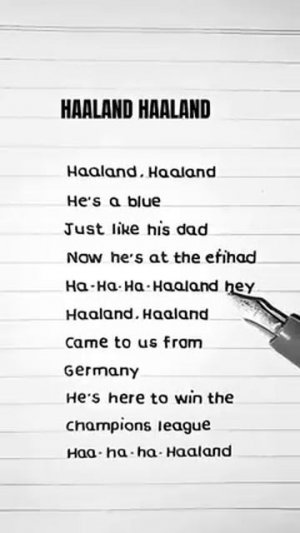 HAALAND HAALAND
Haaland, Haaland
He's a blue
Just like his dad
Now he's at the efihad
Ha-Ha-Ha-Haaland hey
Haaland, Haaland
Came to us from
Germany
He's here to win the
Champions league
Haa-ha-ha-Haaland